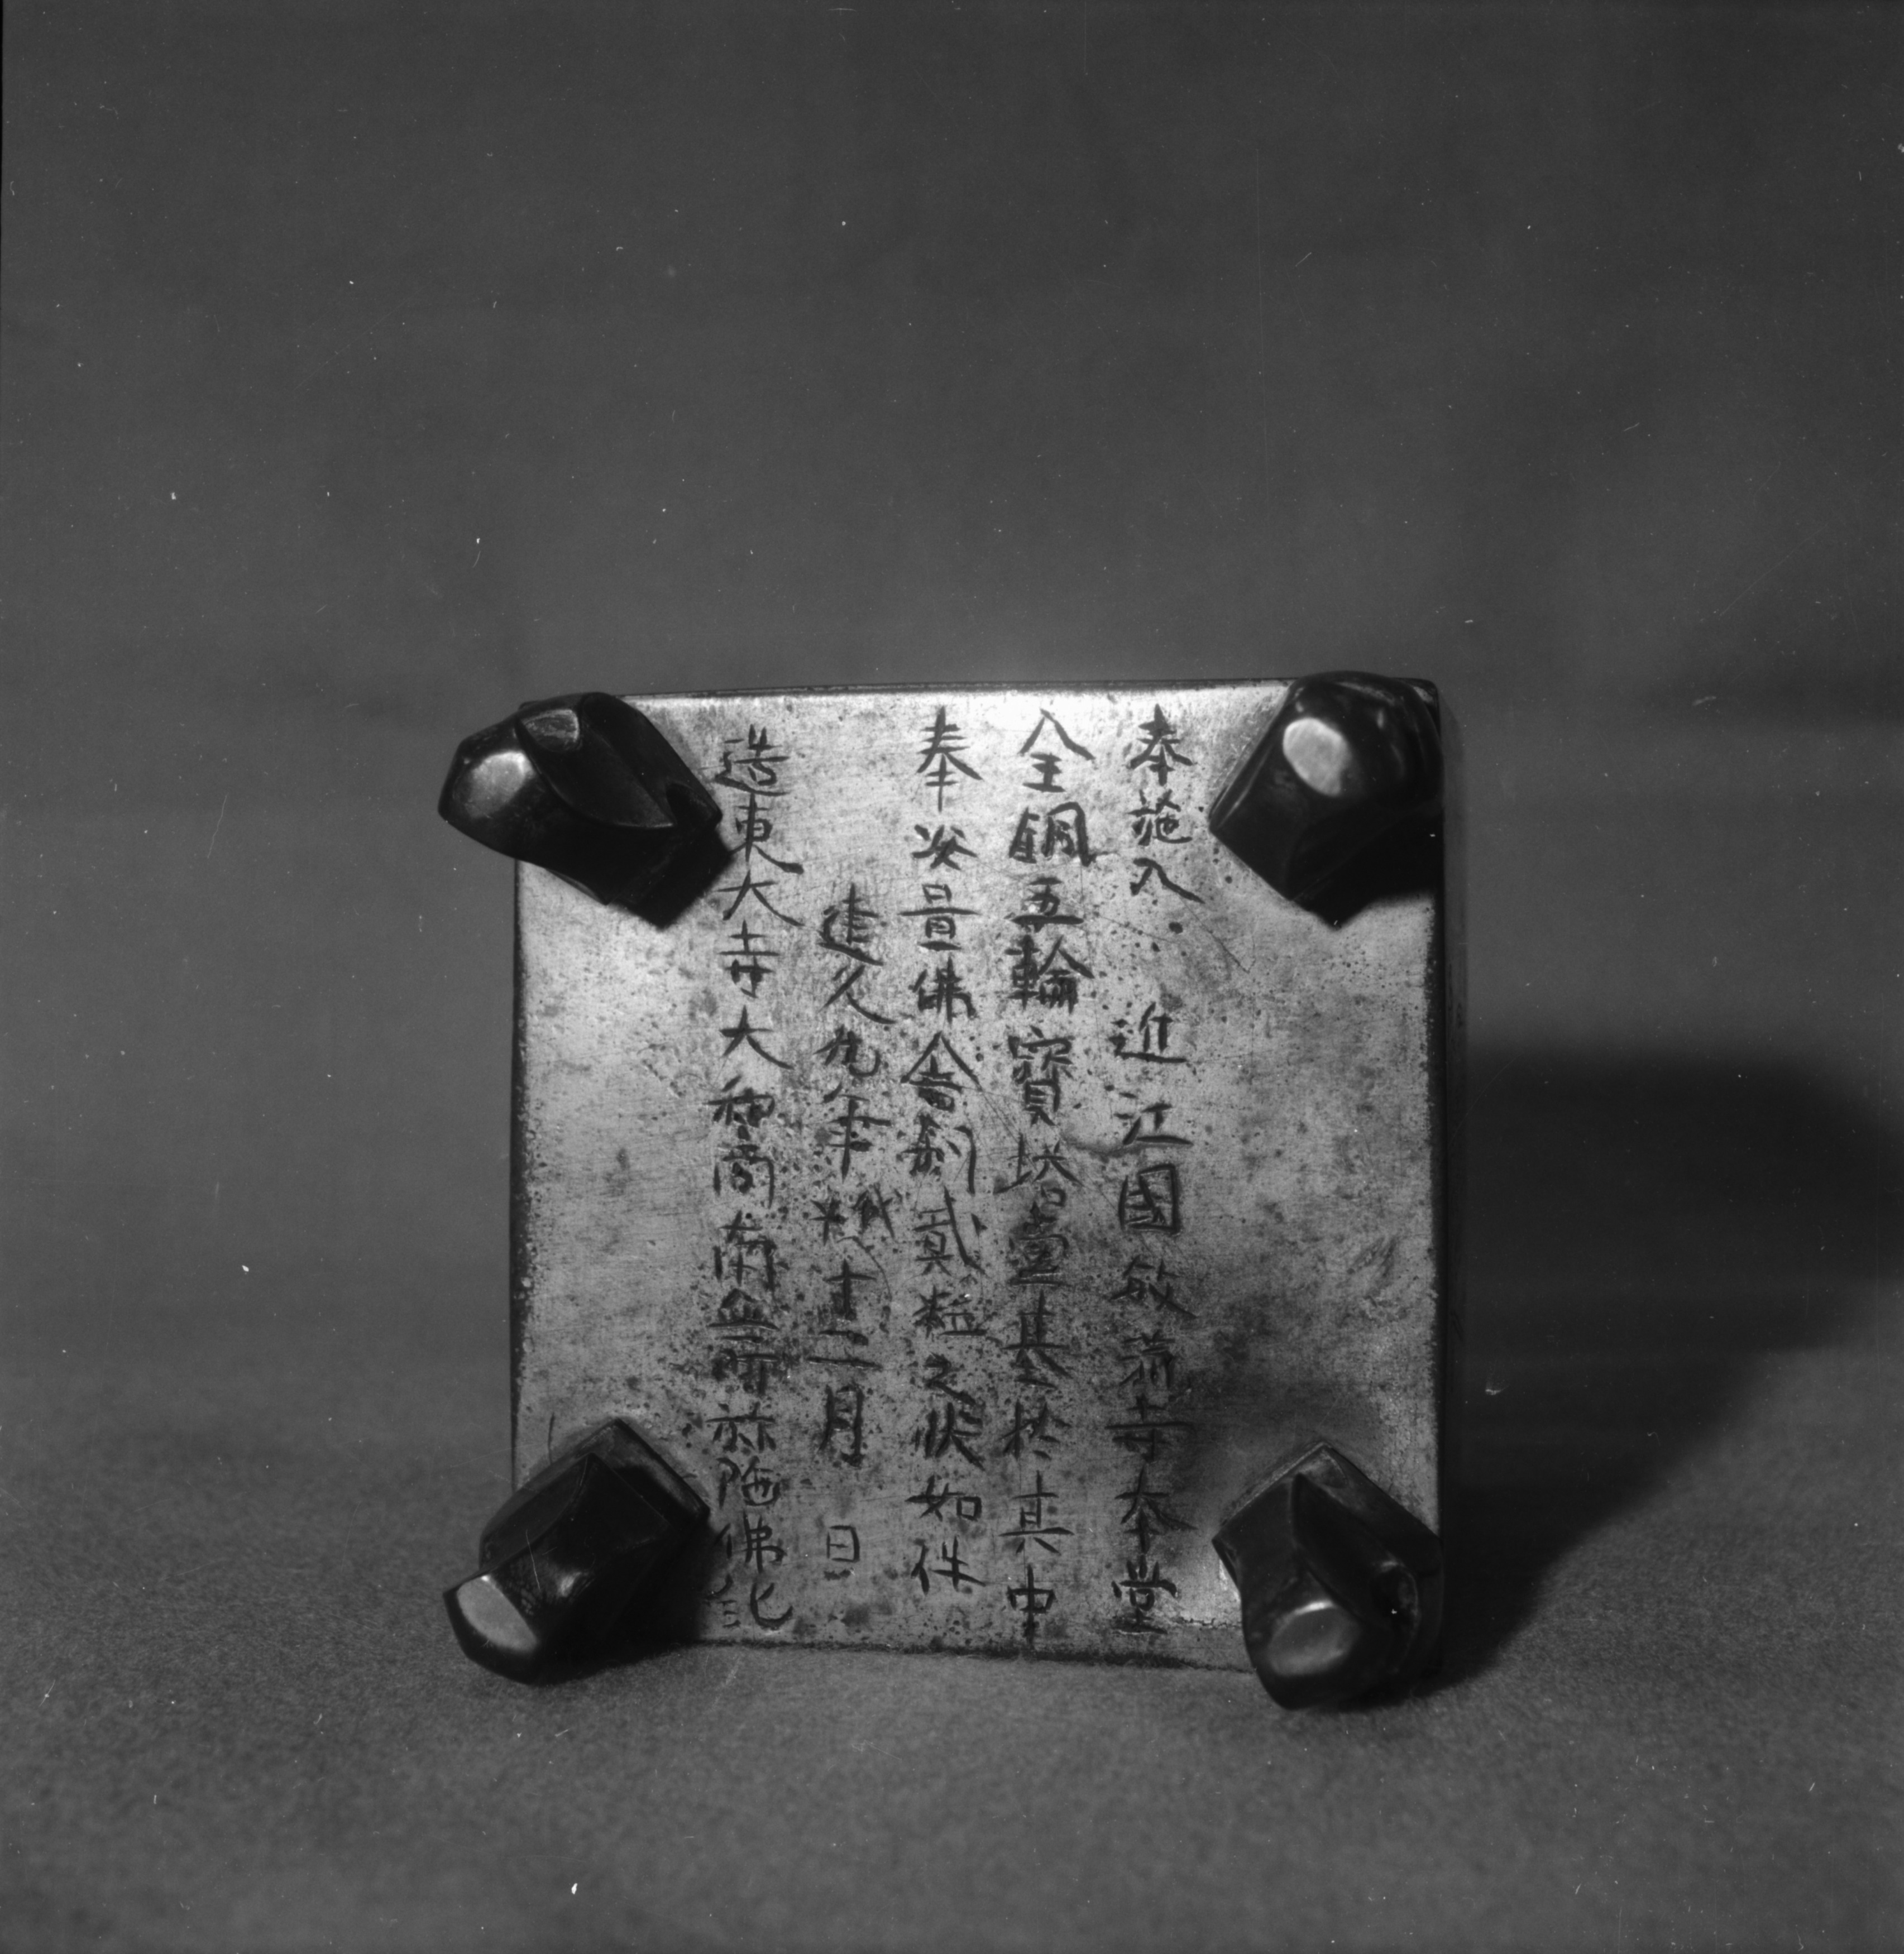 奉施入　近江國敏滿寺本堂
金銅五輪寳塔壹基於其中
奉安置佛舎利貳粒之状如件
建久九年戊午十二月　日
造東大寺大和尚南無阿弥陀佛記